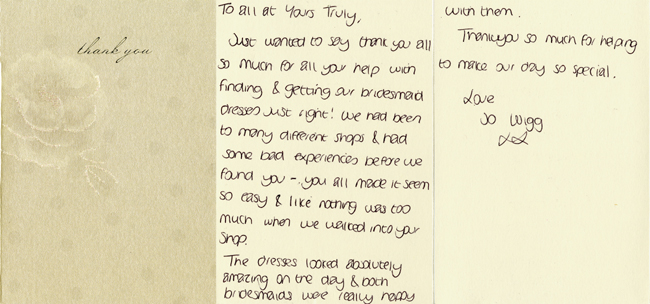 thank you
To all at Yours Truly,
Just wanted to say thank you all
so much for all your help with
finding & getting our bridesmaid
dresses just right! We had been
to many different shops & had
some bad experiences before we
found you - you all made it seem
so easy & like nothing was too
much when we walked into your
shop.
The dresses looked absolutely
amazing on the day & both
bridesmaids were really happy
with them.
Thankyou so much for helping
to make our day so special.
Love
Jo Wigg
xx